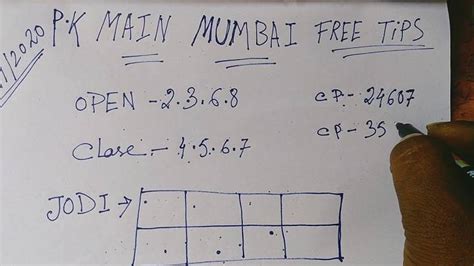 /2020
P.K MAIN MUMBAI FREE TIPS
OPEN - 2.3.6.8
CP - 24607
Close - 4.5.6.7
CP - 35
JODI →